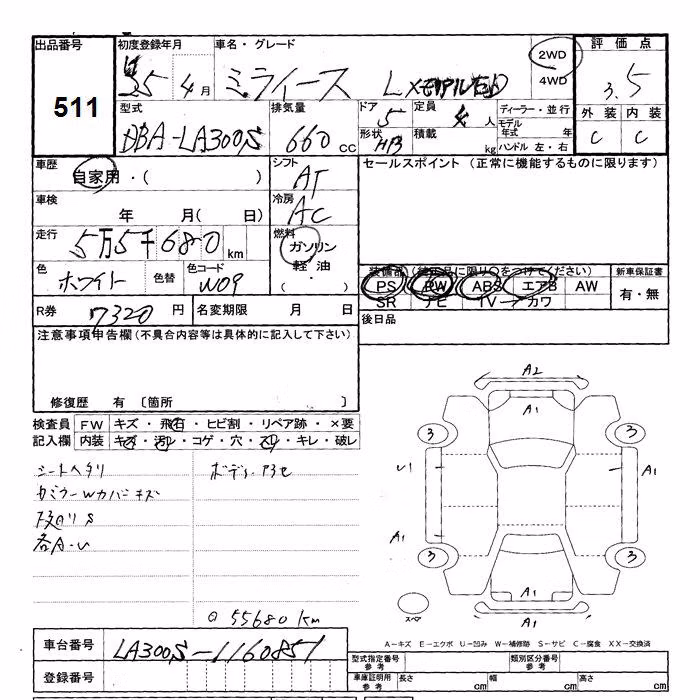 出品番号
511
初度登録年月
25 4月
車名・グレード
ミライース L
2WD
4WD
評価点
3.5
型式
DBA-LA300S
排気量
660 cc
ドア
5
形状
HB
定員
4 人
積載
kg
ディーラー・並行
モデル年式 年
ハンドル 左・右
外装 内装
C C
車歴
自家用・( )
シフト
AT
セールスポイント (正常に機能するものに限ります)
車検
年 月( 日)
冷房
AC
走行
5万5千680 km
燃料
ガソリン
軽油・
( )
色
ホワイト
色替
色コード
W09
装備品 (純正品に限り○をつけてください)
PS PW ABS エアB AW
SR ナビ TV カワ
新車保証書
有・無
R券
7320 円
名変期限 月 日
後日品
注意事項申告欄 (不具合内容等は具体的に記入して下さい)
修復歴 有 〔箇所 〕
検査員記入欄
FW キズ・飛石・ヒビ割・リペア跡・×要
内装 キズ・汚れ・コゲ・穴・スリ・キレ・破レ
シートヘタリ
ボディ
S
各A・U
55680 km
A2
A1
3
3
U1
A1
A1
3
3
A1
A1
スペア
A-キズ E-エクボ U-凹み W-補修跡 S-サビ C-腐食 XX-交換済
車台番号
LA300S-1160851
登録番号
型式指定番号 参考
類別区分番号 参考
車庫証明用 参考
長さ cm
幅 cm
高さ cm